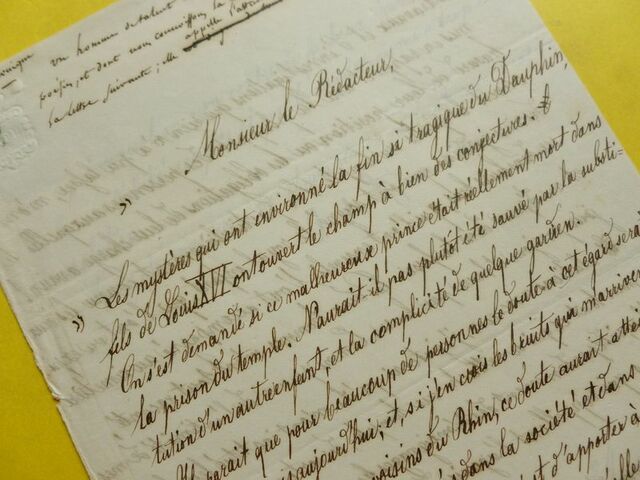 un homme de talent
et dont nous
la lettre suivante; elle appelle
Monsieur le Rédacteur,
" Les mystères qui ont environné la fin si tragique du Dauphin,
fils de Louis XVI ont ouvert le champ à bien des conjectures.
" On s'est demandé si ce malheureux prince était réellement mort dans
la prison du temple. N'aurait il pas plutôt été sauvé par la substi=
tution d'un autre enfant, et la complicité de quelque gardien.
Il parait que pour beaucoup de personnes le doute à cet égard sera
aujourd'hui; et, si j'en crois les bruits qui m'arrivent
voisins du Rhin, ce doute aurait attei
dans la société et dans
d'apporter à